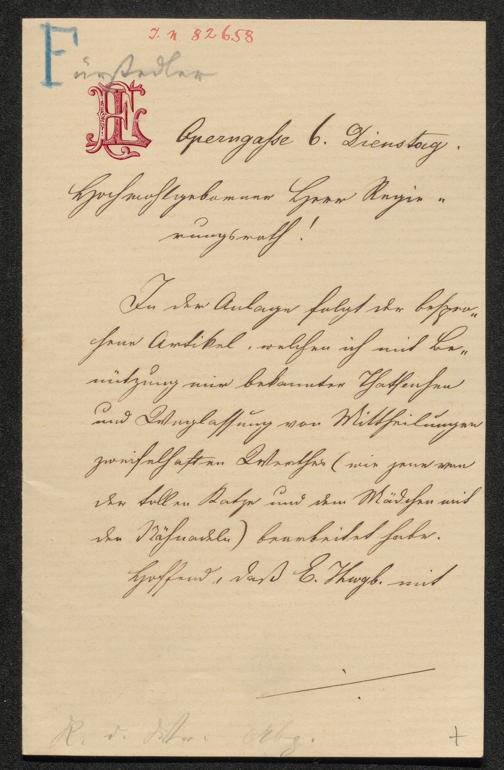 I. N. 82658
Fürstedler
EL
Operngasse 6. Dienstag.
Hochwohlgeborener Herr Regie„
rungsrath!
In der Anlage folgt der bespro„
chene Artikel, welchen ich mit Be„
nützung mir bekannter Thatsachen
und Weglassung von Mittheilungen
zweifelhaften Werthes (wie jene von
der tollen Katze und dem Mädchen mit
den Nähnadeln) bearbeitet habe.
Hoffend, daß E. Hwgb. mit